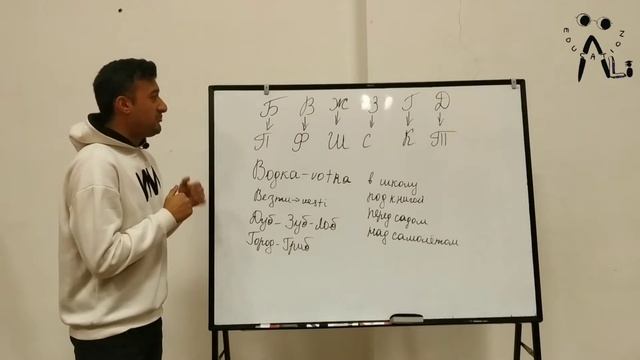 Б В Ж З Г Д
П Ф Ш С К Т
Водка - votka в школу
Везти → vesti под книгой
Дуб - Зуб - Лоб перед садом
Город - Гриб над самолётом
EDUCATION
ALi